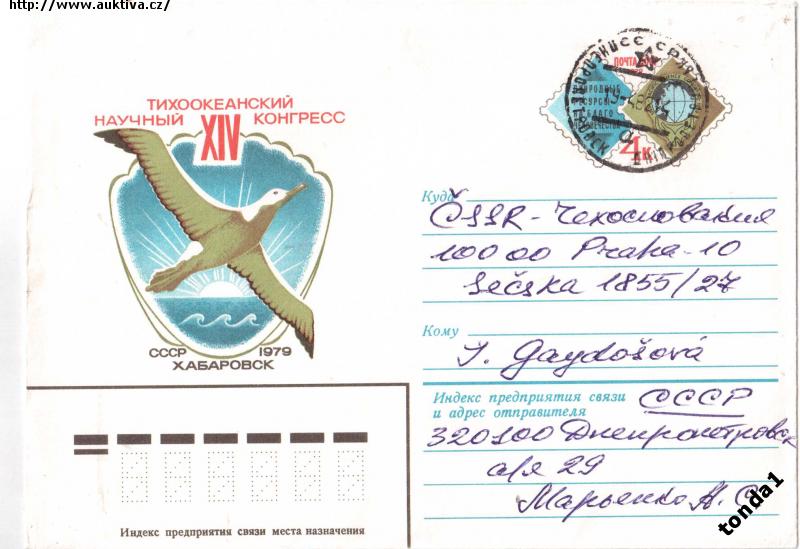 http://www.auktiva.cz/
ТИХООКЕАНСКИЙ
НАУЧНЫЙ XIV КОНГРЕСС
СССР 1979
ХАБАРОВСК
ПОЧТА
4к
Куда
ČSSR - Чехословакия
100 00 Praha-10
Sečska 1855/27
Кому
I. Gaydošová
Индекс предприятия связи
и адрес отправителя
СССР
320100 Днепропетровск
а/я 29
Марьенко А. С.
Индекс предприятия связи места назначения
tonda1